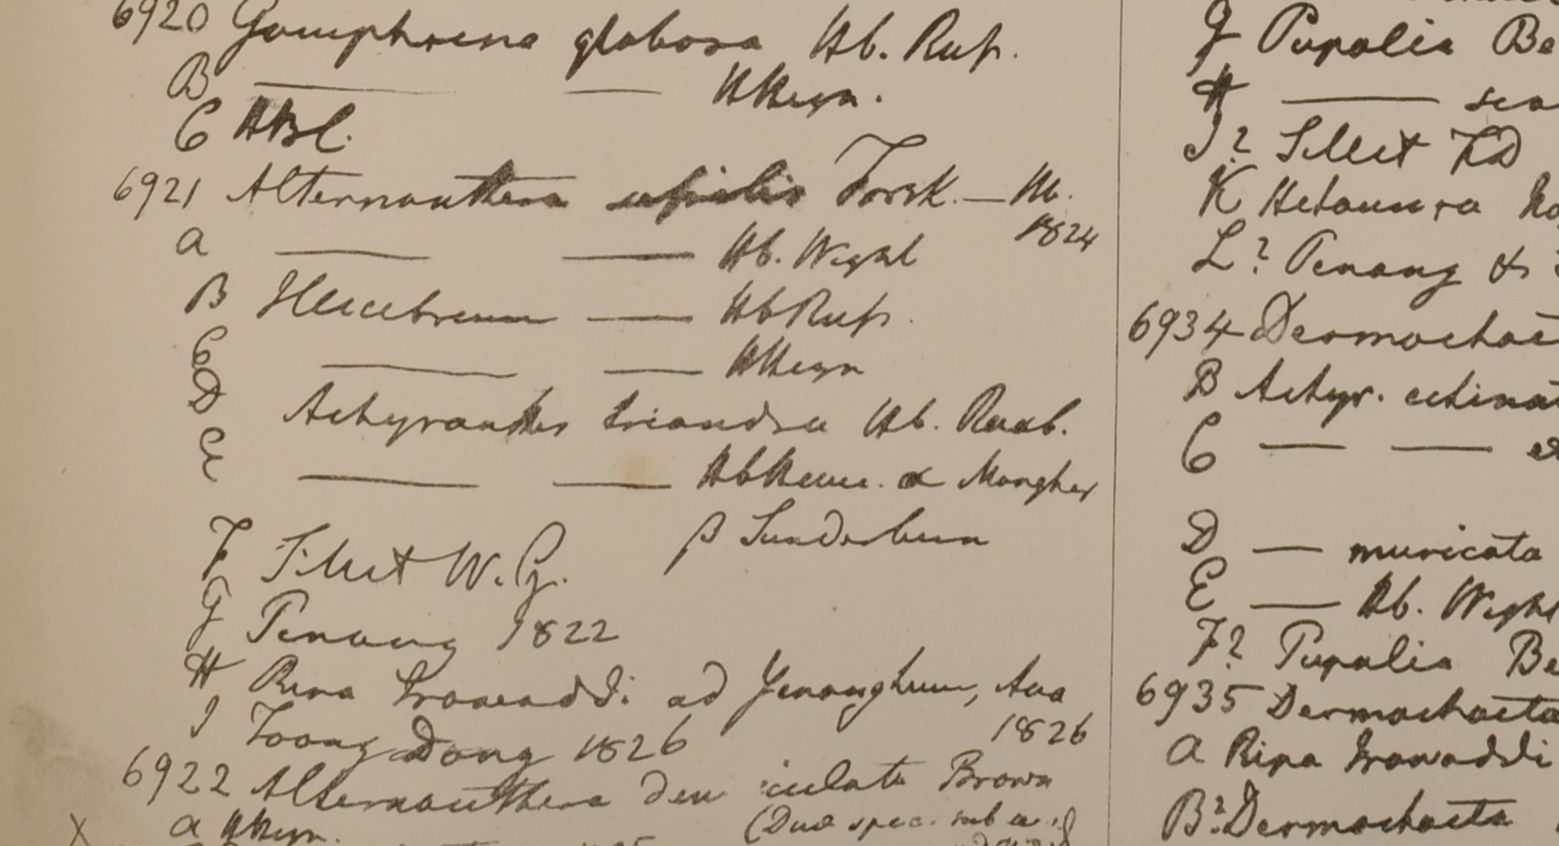 6920 Gomphrena globosa Hb. Ruf.
B — — HHeyn.
C HBC.
6921 Alternanthera Forsk. — Hb.
1824
a — — Hb. Wight
B Illecebrum — HbRuf.
C — — HHeyn
D Achyranthes triandra Hb. Roxb.
E — — HbHam. α Mongher
β Sunderbun
F Sillet W. G.
G Penang 1822
H Ripa Irawaddi ad Yenanghum, Ava
1826
I Toong Dong 1826
6922 Alternanthera den iculata Brown
a HHeyn.
(Duo spec. sub
X
G Pupalia Be
H —
I? Sillet FD
K Hetaunra
L? Penang &
6934 Dermochaet
B Achyr. echinat
C — —
D — muricata
E — Hb. Wight
F? Pupalia Be
6935 Dermochaeta
a Ripa Irawaddi
B? Dermochaeta